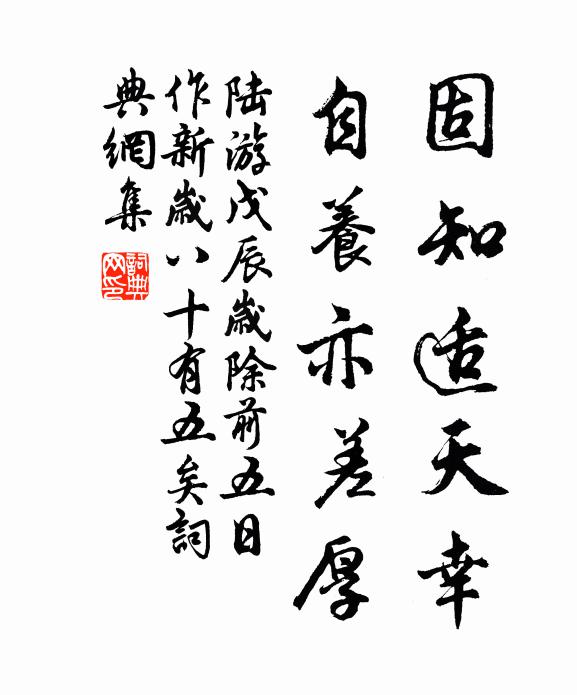 固知适天幸
自養亦差厚
陸游戊辰歲除前五日
作新歲八十有五矣詞
典網集
詞典网印